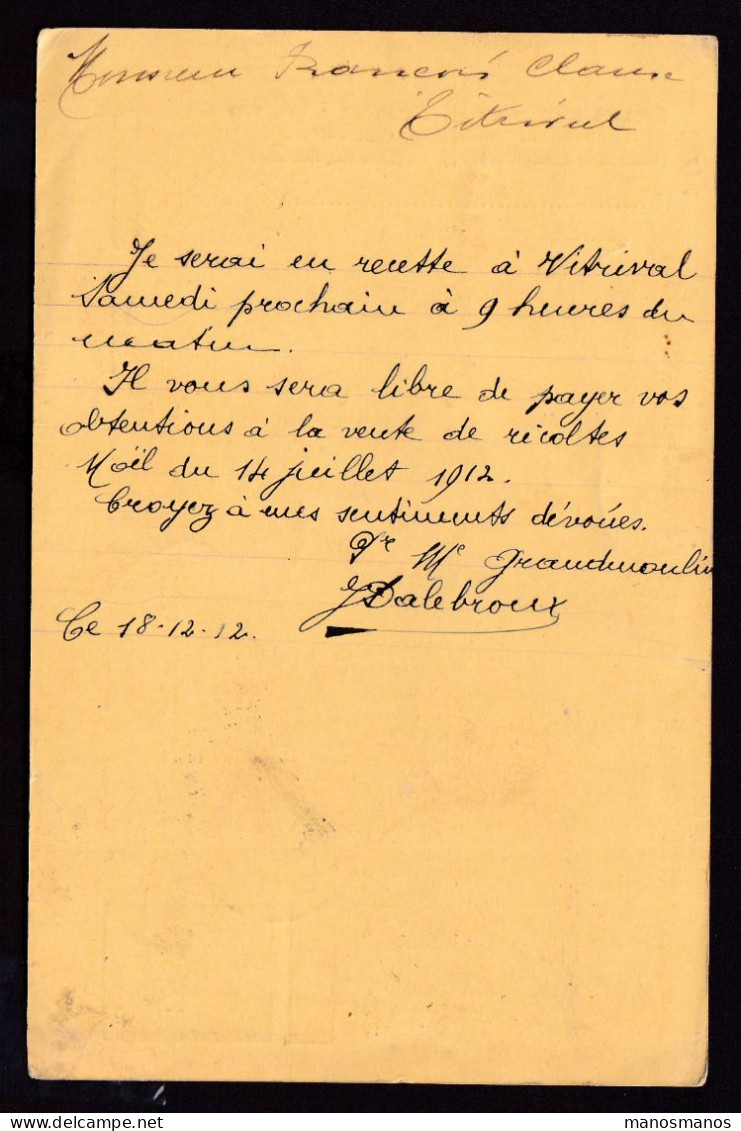 Monsieur François Claus
Vitrival
Je serai en recette à Vitrival
Samedi prochain à 9 heures du
matin.
Il vous sera libre de payer vos
obtentions à la vente de récoltes
Noël du 14 juillet 1912.
Croyez à mes sentiments dévoués.
Pr Me Grandmoulin
JDalebroux
Ce 18-12-12.
manosmanos